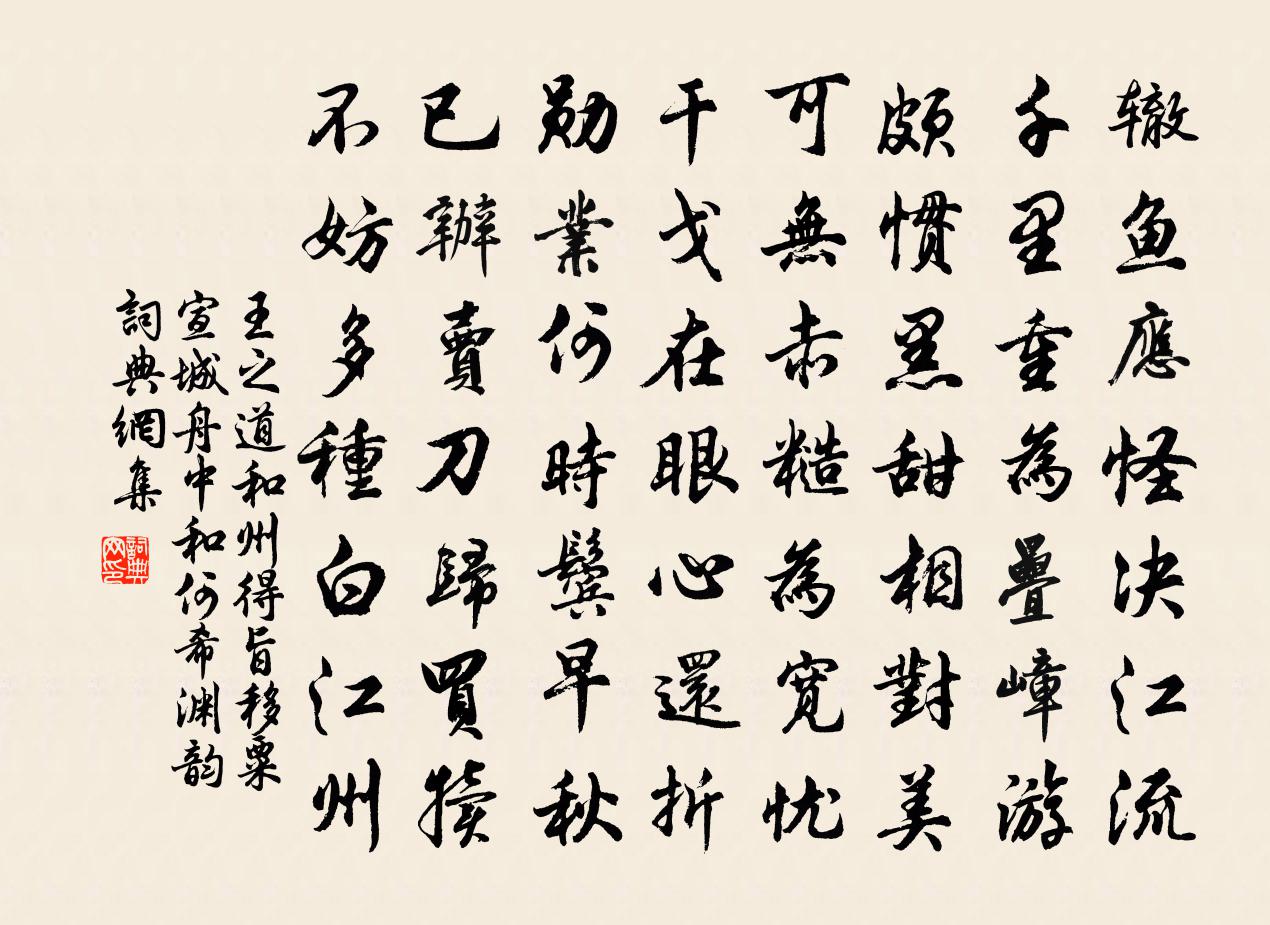 辙鱼應怪决江流
千里重為疊嶂游
頗惯黑甜相對美
可無赤糙為寬忧
干戈在眼心還折
勋業何時鬓早秋
已辦賣刀歸買犊
不妨多種白江州
王之道和州得旨移粟
宣城舟中和何希渊韵
詞典網集
詞典网印